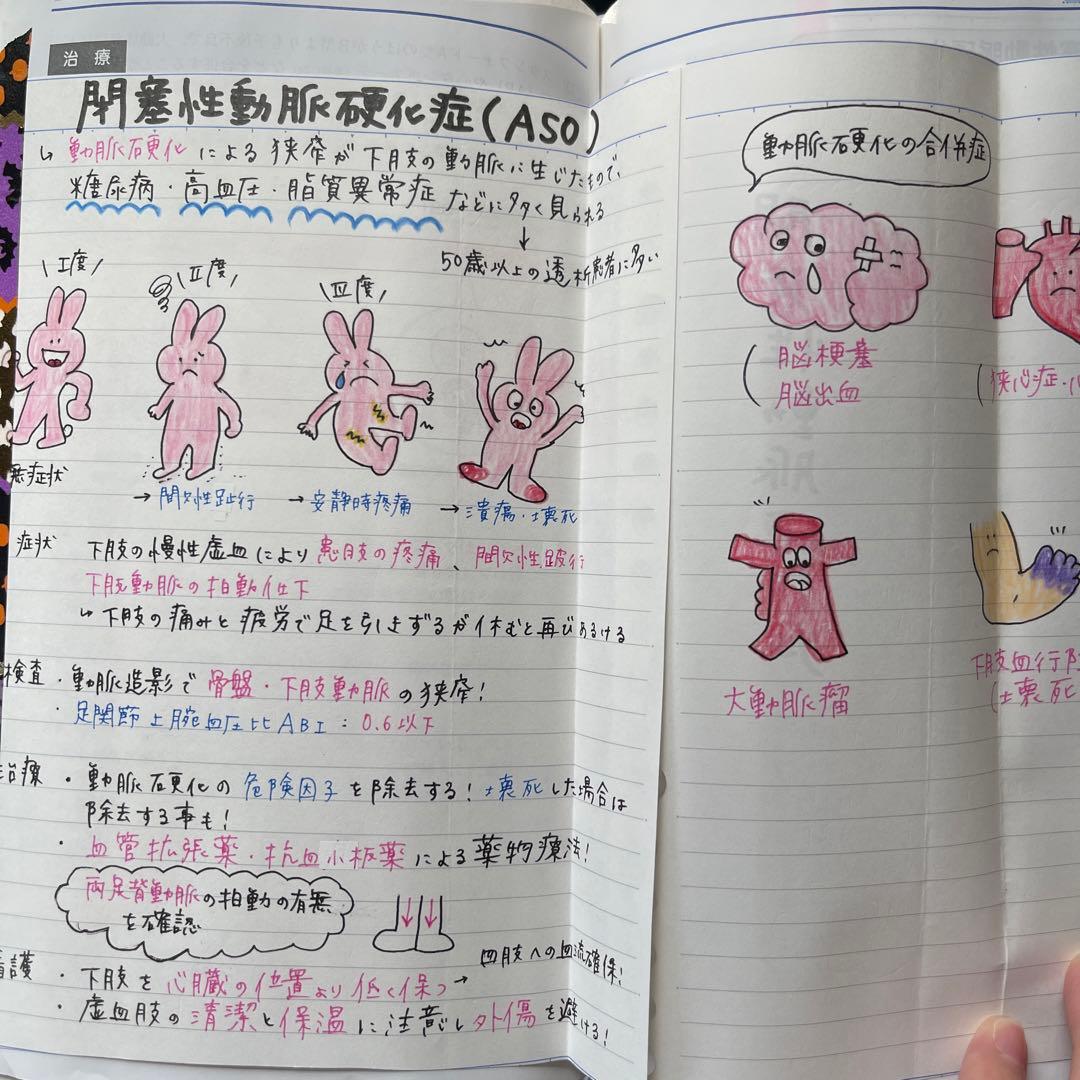 治療
閉塞性動脈硬化症(ASO)
↳ 動脈硬化による狭窄が下肢の動脈に生じたもので、
糖尿病・高血圧・脂質異常症などに多く見られる
↓
50歳以上の透析患者に多い
\Ⅰ度/
\Ⅱ度/
\Ⅲ度/
症状
→間欠性跛行
→安静時疼痛
→潰瘍・壊死
症状 下肢の慢性虚血により患肢の疼痛、間欠性跛行
下肢動脈の拍動低下
↳下肢の痛みと疲労で足を引きずるが休むと再びあるける
検査・動脈造影で骨盤・下肢動脈の狭窄!
・足関節上腕血圧比ABI:0.6以下
治療・動脈硬化の危険因子を除去する!壊死した場合は
除去する事も!
・血管拡張薬・抗血小板薬による薬物療法!
両足背動脈の拍動の有無
を確認
看護・下肢を心臓の位置より低く保つ→四肢への血流確保!
・虚血肢の清潔と保温に注意し外傷を避ける!
動脈硬化の合併症
脳梗塞
脳出血
狭心症・心
大動脈瘤
下肢血行障
(壊死